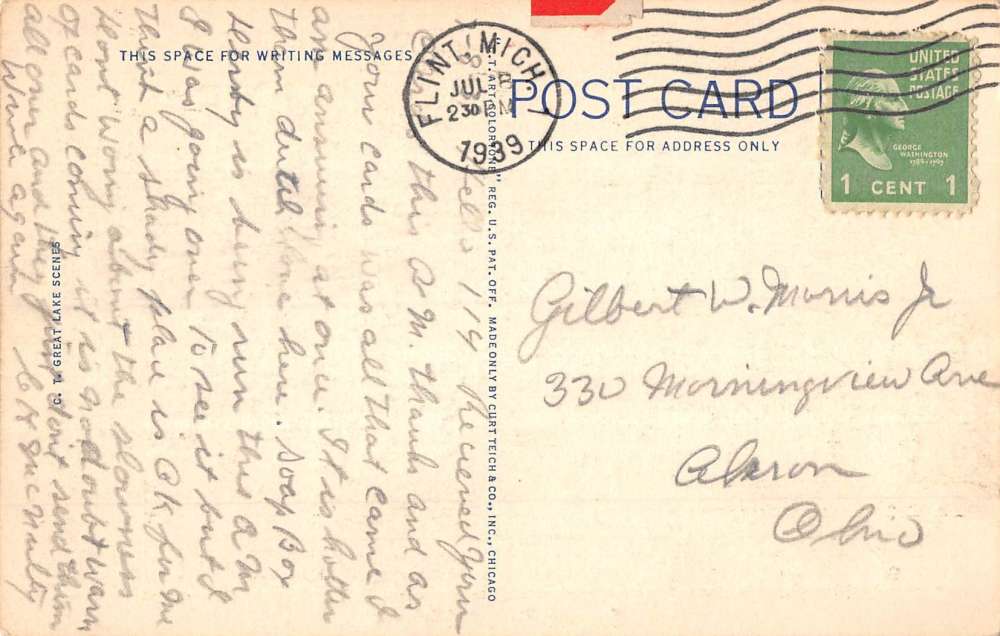 THIS SPACE FOR WRITING MESSAGES
POST CARD
THIS SPACE FOR ADDRESS ONLY
FLINT, MICH.
JUL
2 30 PM
1939
UNITED
STATES
POSTAGE
GEORGE
WASHINGTON
1 CENT 1
Gilbert W. Morris Jr
330 Morningview Ave
Akron
Ohio
119 Received your
this A M. thanks and as
your cards was all that came I
am answering at once. It is hotter
than dutch love here. Soap Box
derby being run this A M
I was going over to see it but I
think a shady place is O K for me
dont worry about the slowness
of cards coming it is no doubt warm
all over and they just dont send them
Write again
C. T. GREAT LAKE SCENES
C.T. ART-COLORTONE" REG. U.S. PAT. OFF. MADE ONLY BY CURT TEICH & CO., INC., CHICAGO